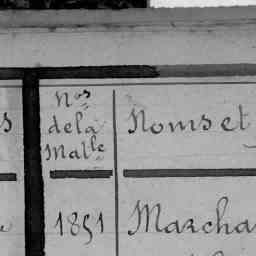 Nos
de la
Malle
Noms et
1851
Marcha